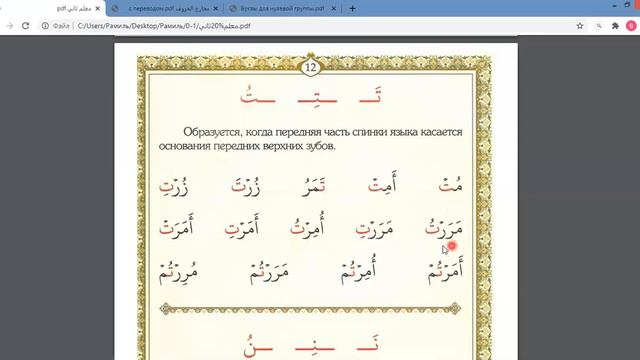 معلم ثاني.pdf
مخارج الحروف с переводом.pdf
Буквы для нулевой группы.pdf
Файл
C:/Users/Рамиль/Desktop/Рамиль/0-1/معلم%20ثاني.pdf
12
تَـ ـتِـ ـتُ
Образуется, когда передняя часть спинки языка касается
основания передних верхних зубов.
مُتْ أَمِتْ تَمَرُ زُرْتَ زُرْتِ
مَرَرْتُ مَرَرْتِ أُمِرْتُ أَمَرْتِ أَمَرَتْ
أَمَرْتُمْ أُمِرْتُمْ مَرَرْتُمْ مُرِرْتُمْ
نَـ ـنِـ ـنُ